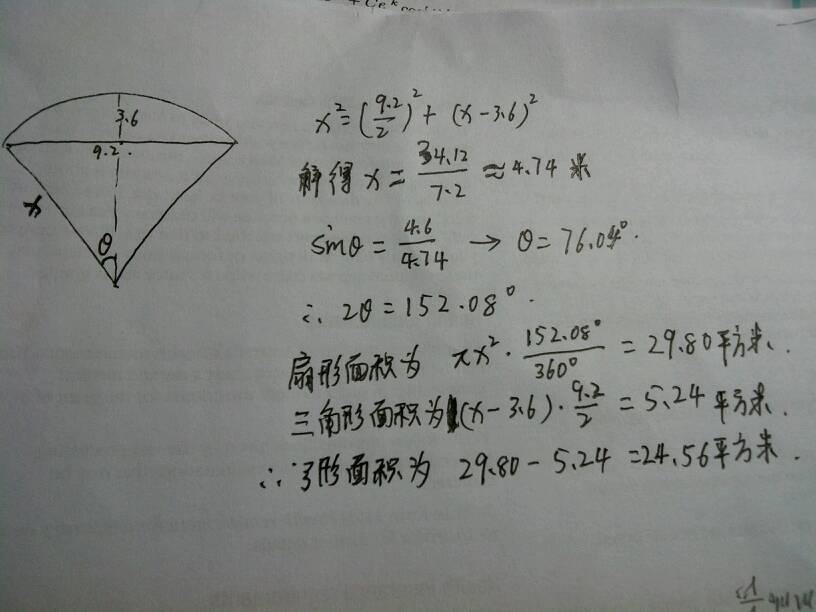 3.6
9.2
x
θ
x² = (9.2/2)² + (x-3.6)²
解得 x = 34.12/7.2 ≈ 4.74 米
sinθ = 4.6/4.74 → θ = 76.04°.
∴ 2θ = 152.08°.
扇形面积为 πx² · 152.08°/360° = 29.80 平方米.
三角形面积为 (x-3.6) · 9.2/2 = 5.24 平方米.
∴ 弓形面积为 29.80 - 5.24 = 24.56 平方米.